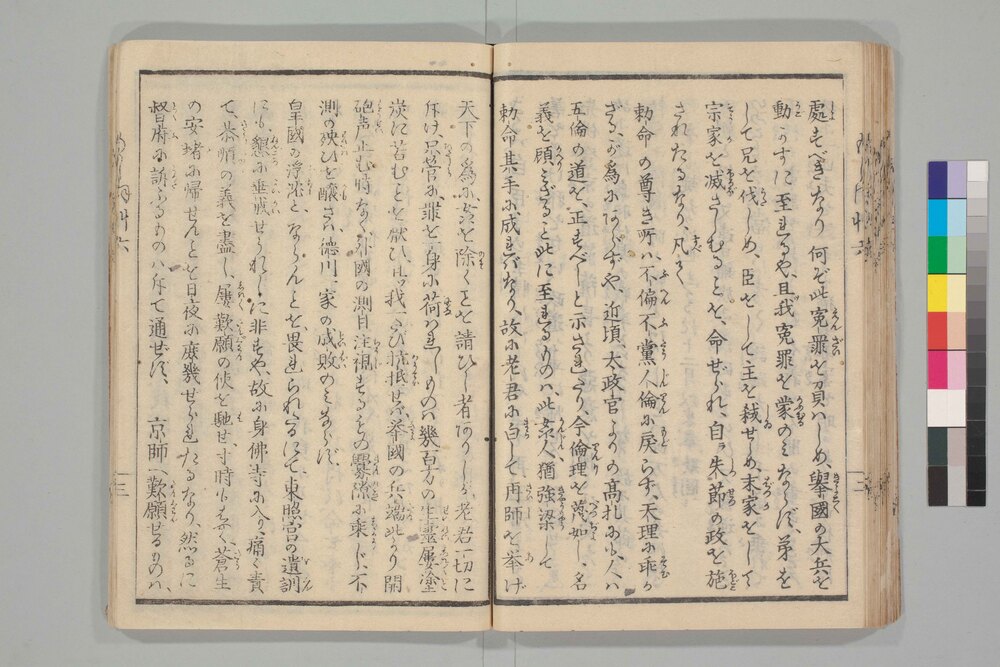 處すべきなり何ぞ此冤罪を負ハしめ、擧國の大兵を
動かすに至るや、且我冤罪を蒙のミならず、弟を
して兄を伐しめ、臣をして主を弑せしめ、末家をして
宗家を滅さしむることを、命ぜられ、自ラ朱節の政を施
されたるなり、凡そ
勅命の尊き所ハ不偏不黨人倫に戻らす、天理に乖か
ざるが為にあらずや、近頃、太政官よりの高札にも、人ハ
五倫の道を、正すべしと示されたり、今倫理を蔑如し、名
義を顧ミざること此に至るものハ、此姦人猶強梁して
勅命其手に成ればなり、故に老君に白して再師を挙げ
天下の為に姦を除くことを請ひし者ありしが、老君一切に
斥け、只管に罪を一身に荷ハれしものハ幾百万の生靈屡塗
炭に苦むことを厭ひ、且ツ我一たび抗抵せバ、挙國の兵端此より開
砲声止む時なく、外國の測目注視するもの釁隙に乗じ、不
測の殃ひを醸さバ、徳川一家の成敗のミならず、
皇國の浮沈と、ならんとを、畏れられたるにて、東照宮の遺訓
にも、懇に垂戒せられしに非ずや、故に身佛寺に入り痛く責
て、恭順の義を盡し、屡歎願の使を馳せ、寸時も早く、蒼生
の安堵に帰せんことを日夜に庶幾せられたるなり、然るに
督府に訴ふるものハ斥て通ぜす、京師へ歎願せるものハ、